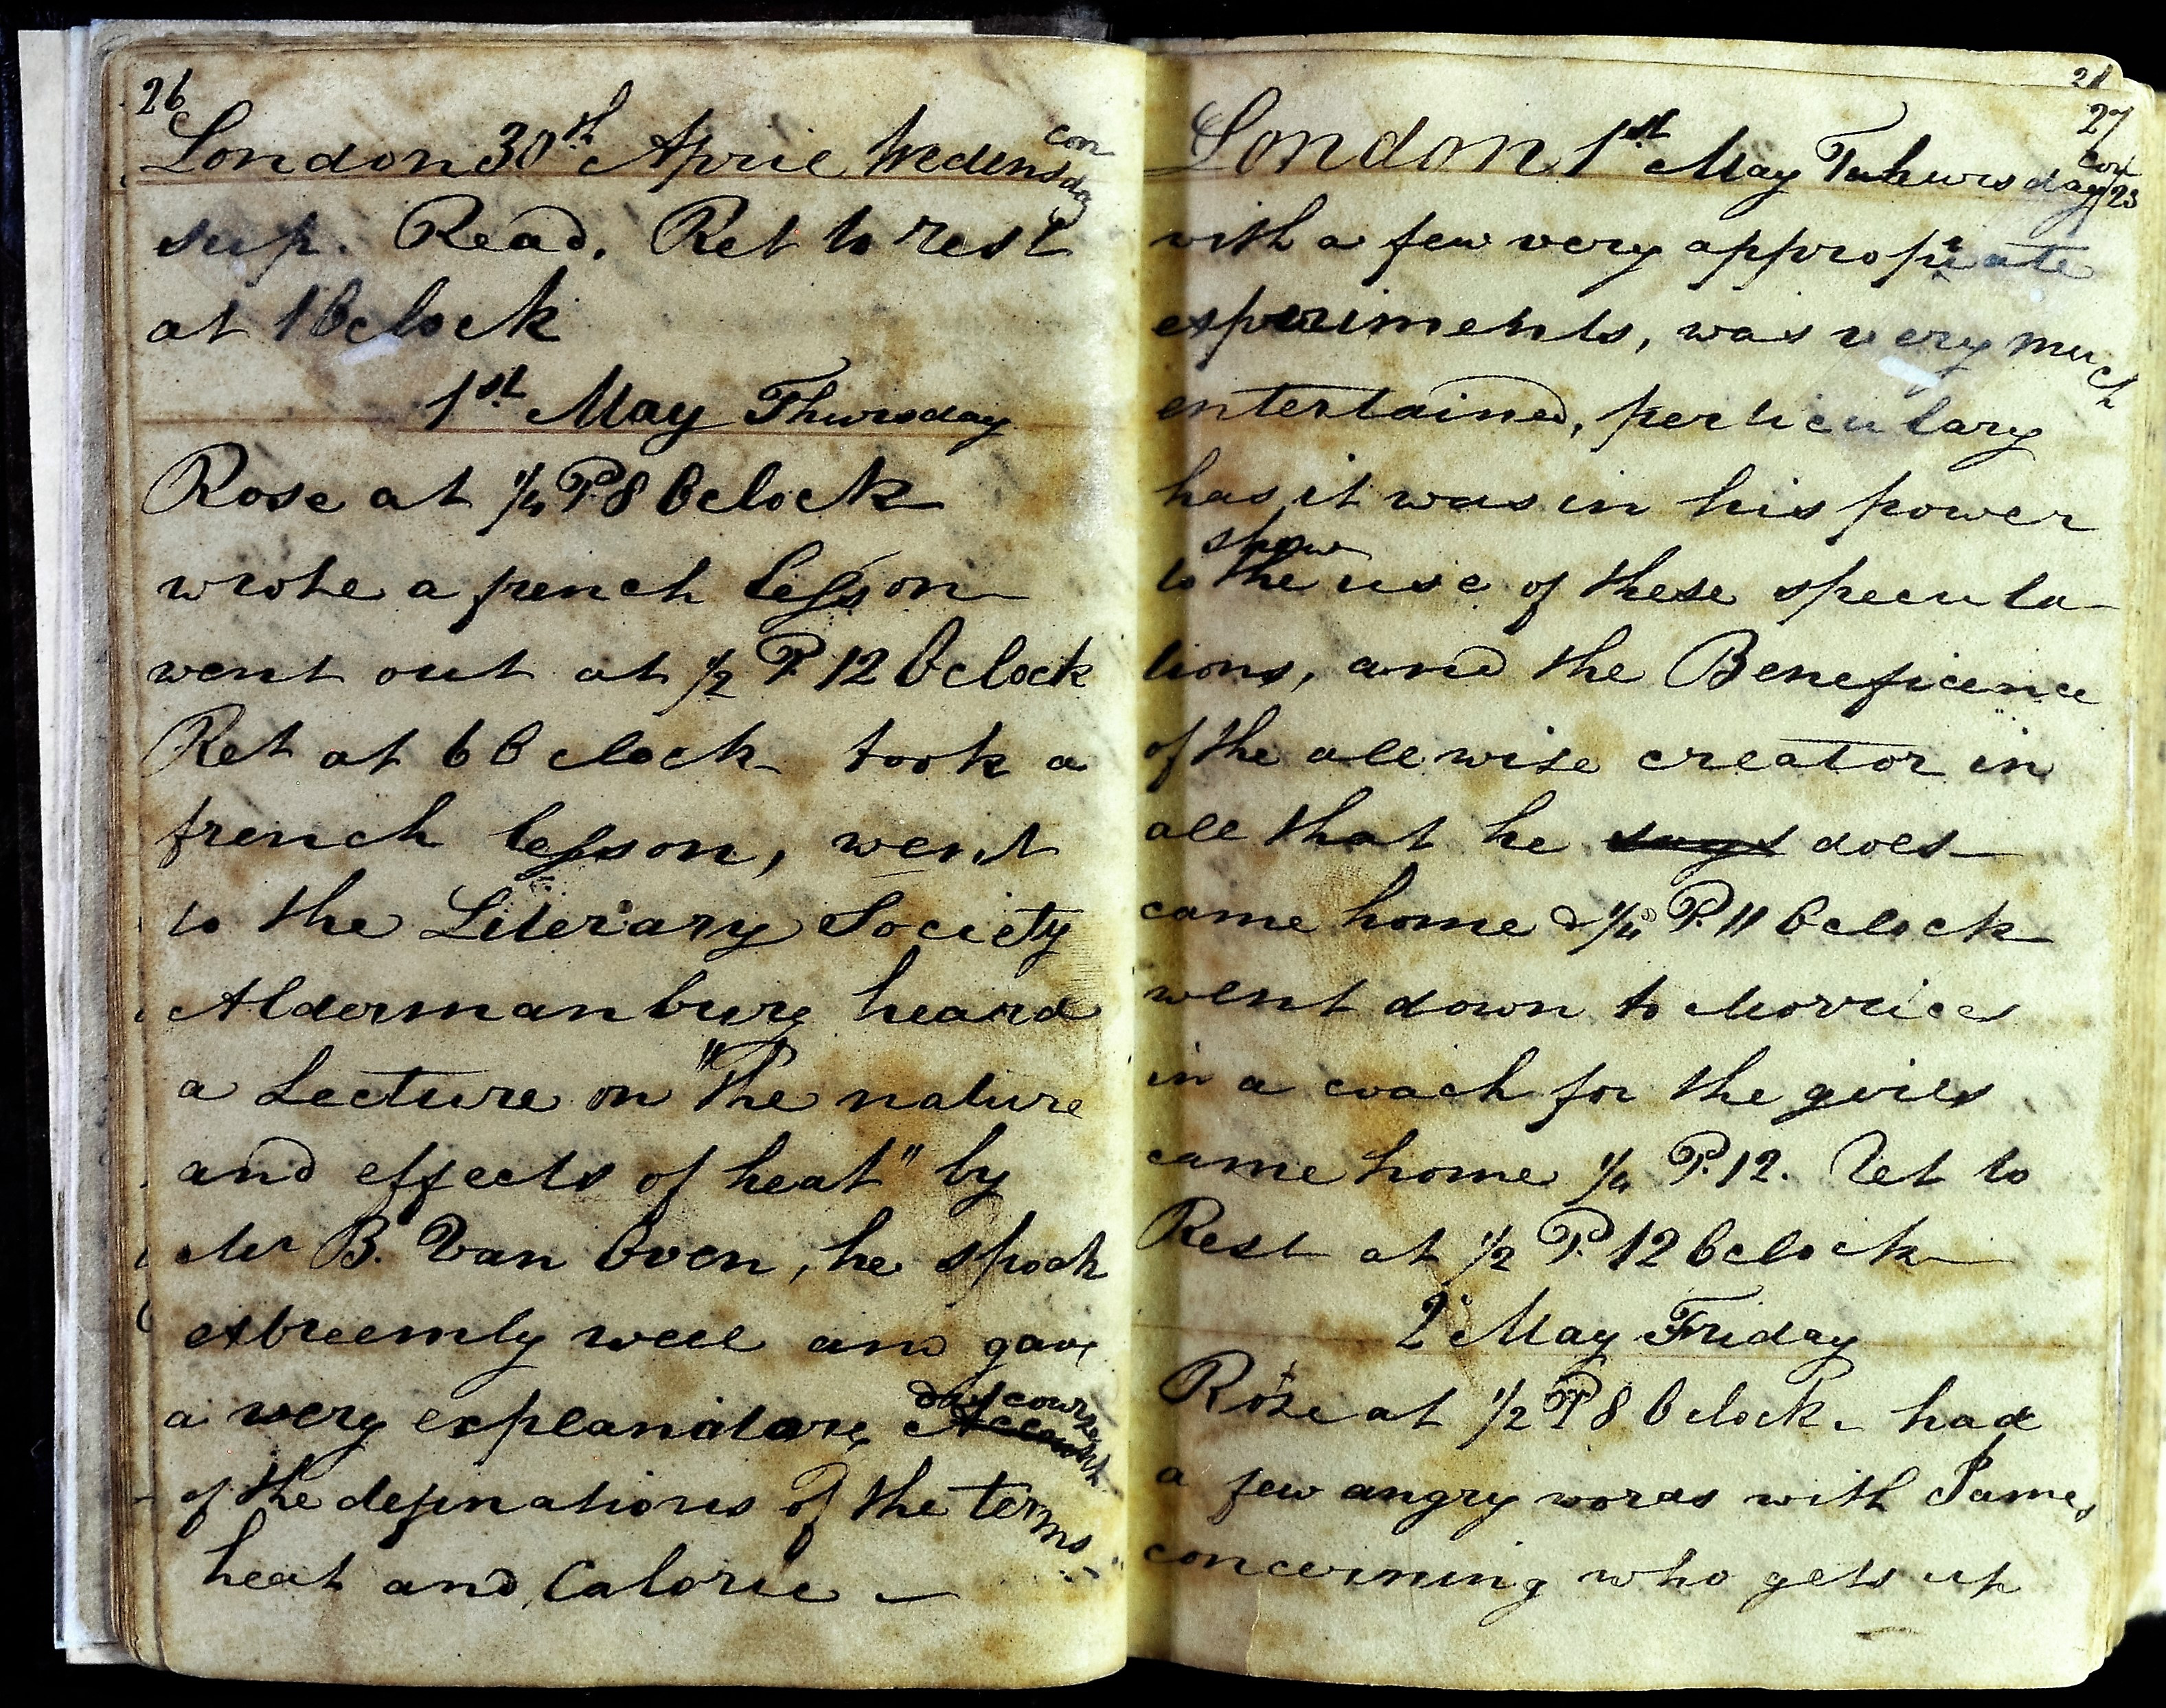 26
London 30th April Wedensday con
sup. Read. Ret to rest
at 1 Oclock
1st May Thursday
Rose at 1/4 P. 8 Oclock
wrote a french lesson
went out at 1/2 P. 12 Oclock
Ret at 6 O clock took a
french lesson, went
to the Literary Society
Aldermanbury heard
a Lecture on "The nature
and effects of heat" by
Mr B. Van Oven, he spoak
extreemly well and gave
a very explanatory Account discourse
of the definations of the terms
heat and Caloric —
27
London 1st May Thursday con
with a few very appropriate
experiments, was very much
entertained, perticulary
has it was in his power
to show the use of these specula-
tions, and the Beneficence
of the all wise creator in
all that he says does
came home at 1/4 P. 11 Oclock
went down to Morrices
in a coach for the girls
came home 1/4 P. 12. Ret to
Rest at 1/2 P. 12 Oclock
2d May Friday
Rose at 1/2 P 8 O clock. had
a few angry words with James
concerning who gets up